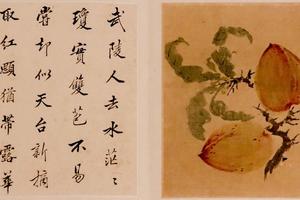 武陵人去水茫〻
瓊實雙苞不易
嘗却似天台新摘
取紅顋猶帶露華